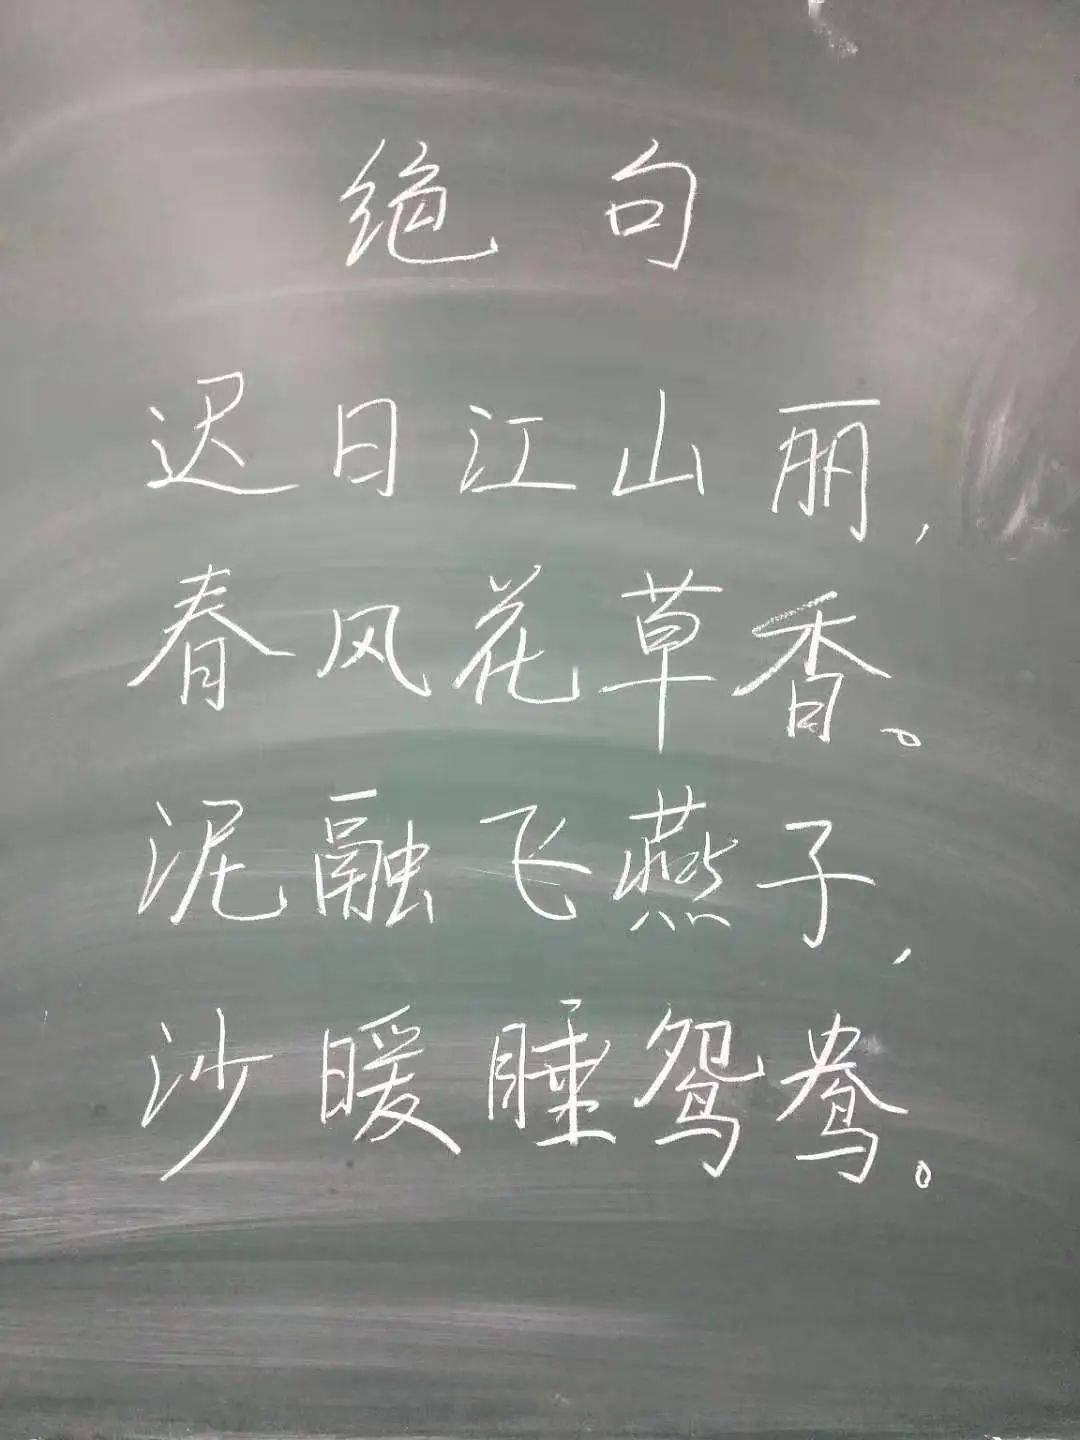 绝句
迟日江山丽,
春风花草香。
泥融飞燕子,
沙暖睡鸳鸯。